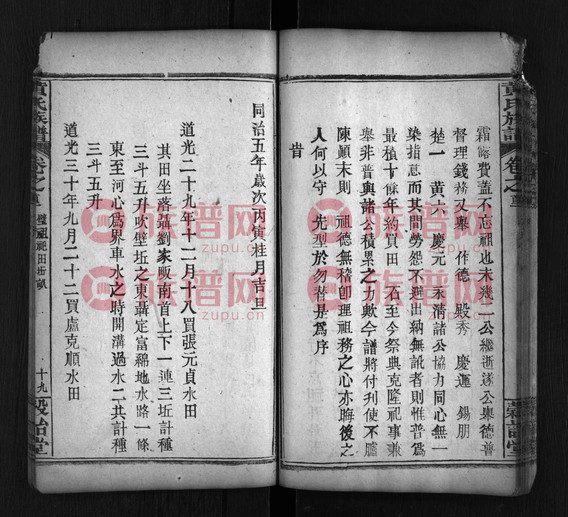 霜露費蓋不忘祖也未幾二公繼逝遂公舉德普
督理錢務又舉 作德 殿秀 慶運 錫朋
楚一 黃六 慶元 永清諸公協力同心無一
染指意而其間勞怨不避出納無訛者則惟普為
最植十餘年約買田 石至今祭典克隆祀事兼
舉非普與諸公積累之力歟今譜將付刋使不臚
陳顛末則 祖德無稽卽理祖務之心亦晦後之
人何以守 先型於勿替是為序
旹
同治五年歲次丙寅桂月吉旦
道光二十九年十二月十八買張元貞水田
其田坐落聶劉家畈南首上下一連三坵計種
三斗五升吹壁坵之東聶定富綿地水路一條
東至河心為界車水之時開溝過水二共計種
三斗五升
道光三十年九月二十二買盧克順水田
黃氏族譜
卷之
祖祀田坵畝
十九
族谱网
zupu.cn